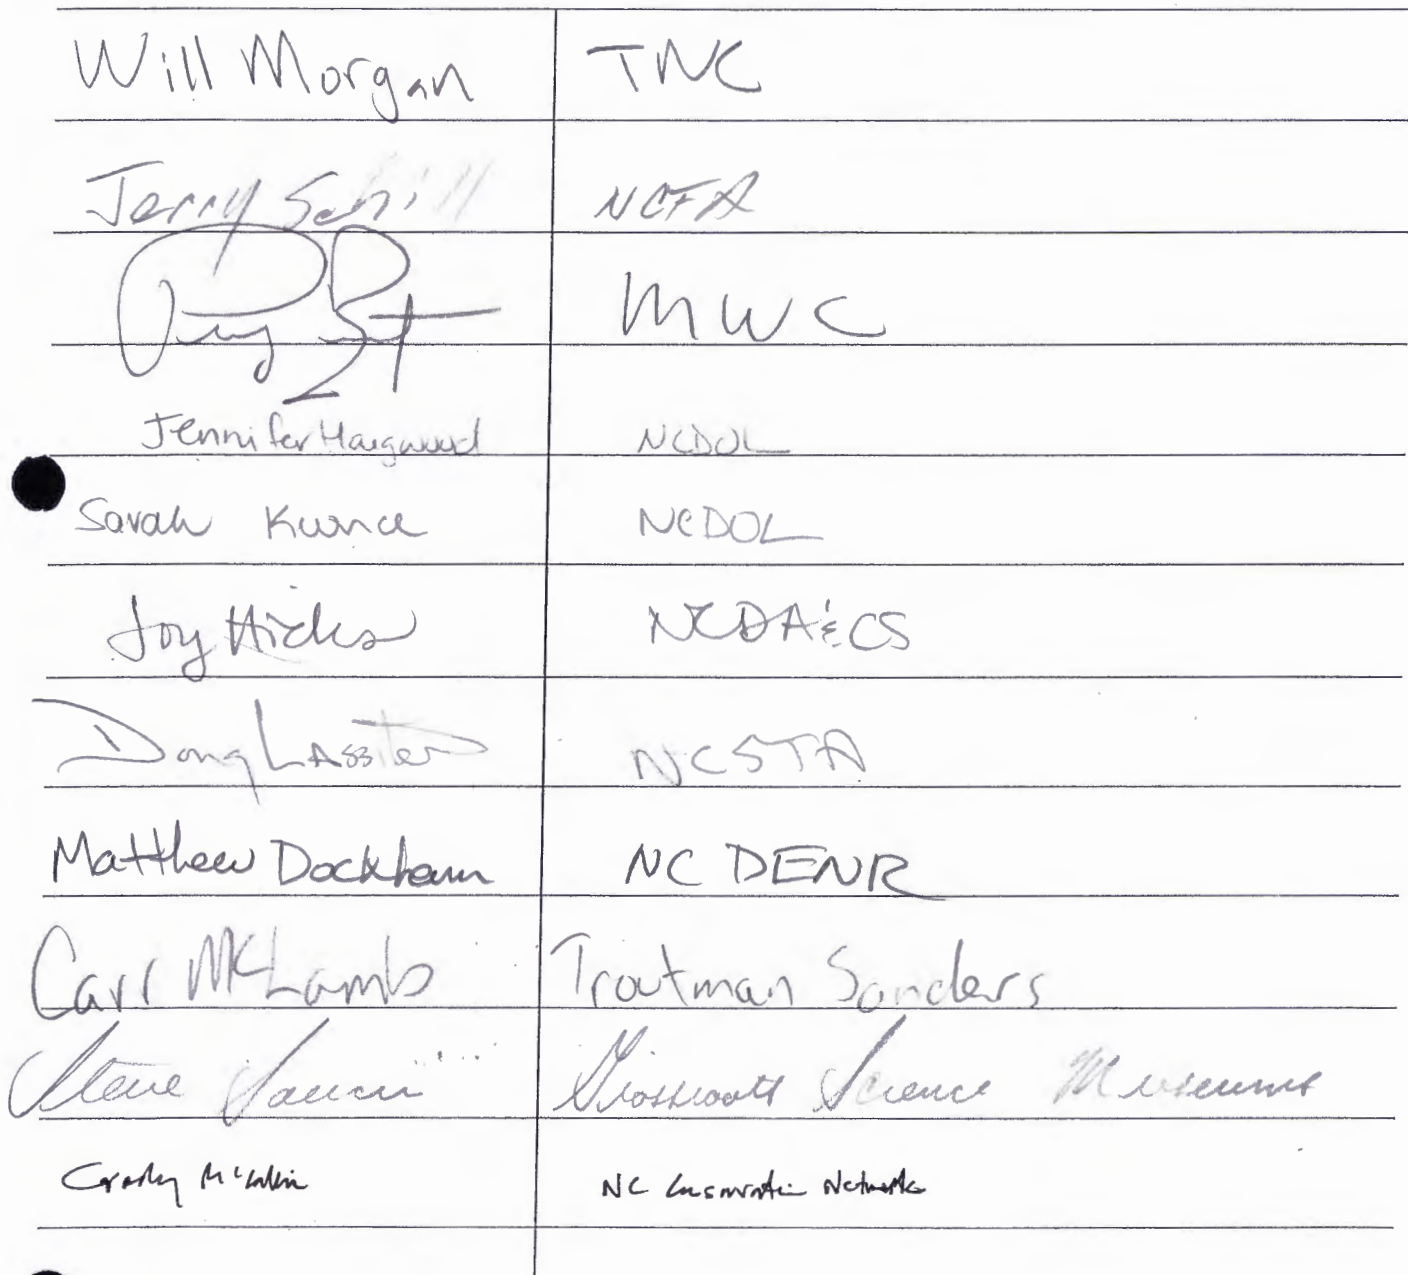 Will Morgan TNC
Jerry Schill NCFA
MWC
Jennifer Haigwood NCDOL
Sarah Kunce NCDOL
Joy Hicks NCDA&CS
Doug Lassiter NCSTA
Matthew Dockham NC DENR
Carr McLamb Troutman Sanders
Steve Grassroots Science Museums
Grady NC Conservation Network